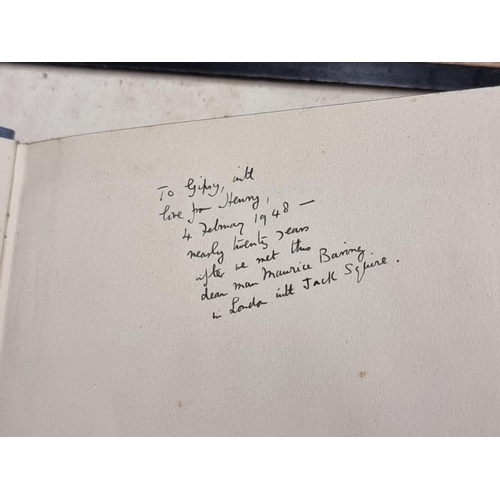 To Gipsy, with
love from Henry,
4 February 1948 —
nearly twenty years
after we met this
dear man Maurice Baring
in London with Jack Squire.